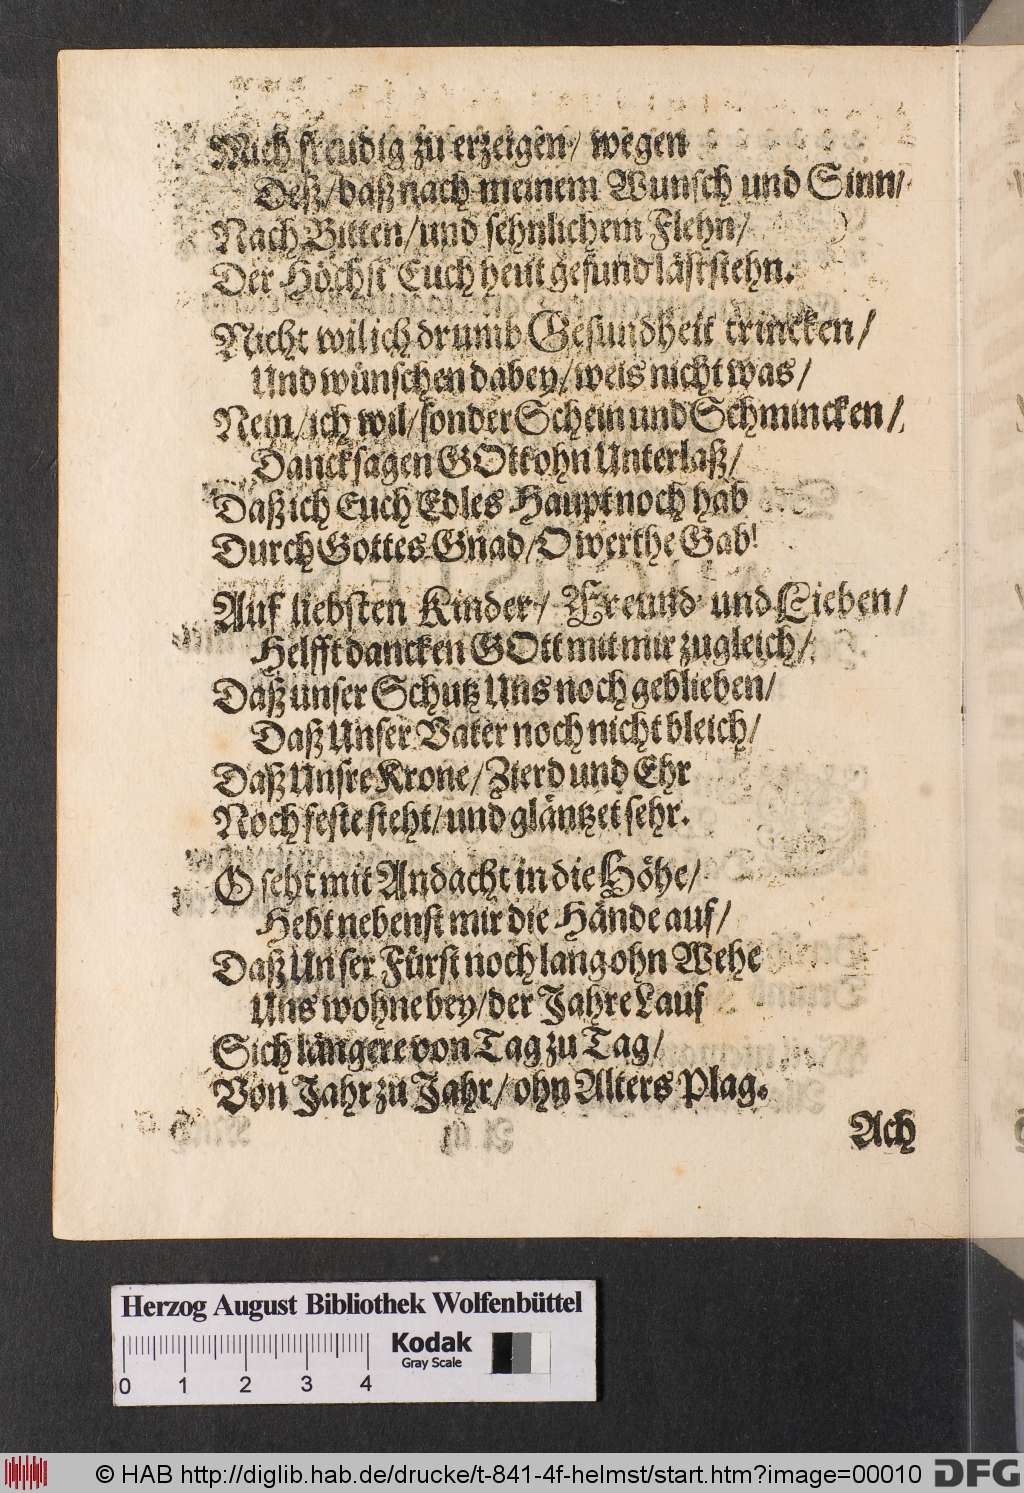 Mich freudig zu erzeigen/ wegen
Deß/ daß nach meinem Wunsch und Sinn/
Nach Bitten/ und sehnlichem Flehn/
Der Höchst Euch heut gesund läst stehn.
Nicht wil ich drumb Gesundheit trincken/
Und wünschen dabey/ weis nicht was/
Nein/ ich wil/ sonder Schein und Schmincken/
Dancksagen GOtt ohn Unterlaß/
Daß ich Euch Edles Haupt noch hab
Durch Gottes Gnad/ O werthe Gab!
Auf liebsten Kinder/ Freund und Lieben/
Helfft dancken GOtt mit mir zugleich/
Daß unser Schutz Uns noch geblieben/
Daß Unser Vater noch nicht bleich/
Daß Unsre Krone/ Zierd und Ehr
Noch feste steht/ und gläntzet sehr.
O seht mit Andacht in die Höhe/
Hebt nebenst mir die Hände auf/
Daß Unser Fürst noch lang ohn Wehe
Uns wohne bey/ der Jahre Lauf
Sich längere von Tag zu Tag/
Von Jahr zu Jahr/ ohn Alters Plag.
Ach
Herzog August Bibliothek Wolfenbüttel
Kodak
Gray Scale
0 1 2 3 4
© HAB http://diglib.hab.de/drucke/t-841-4f-helmst/start.htm?image=00010
DFG